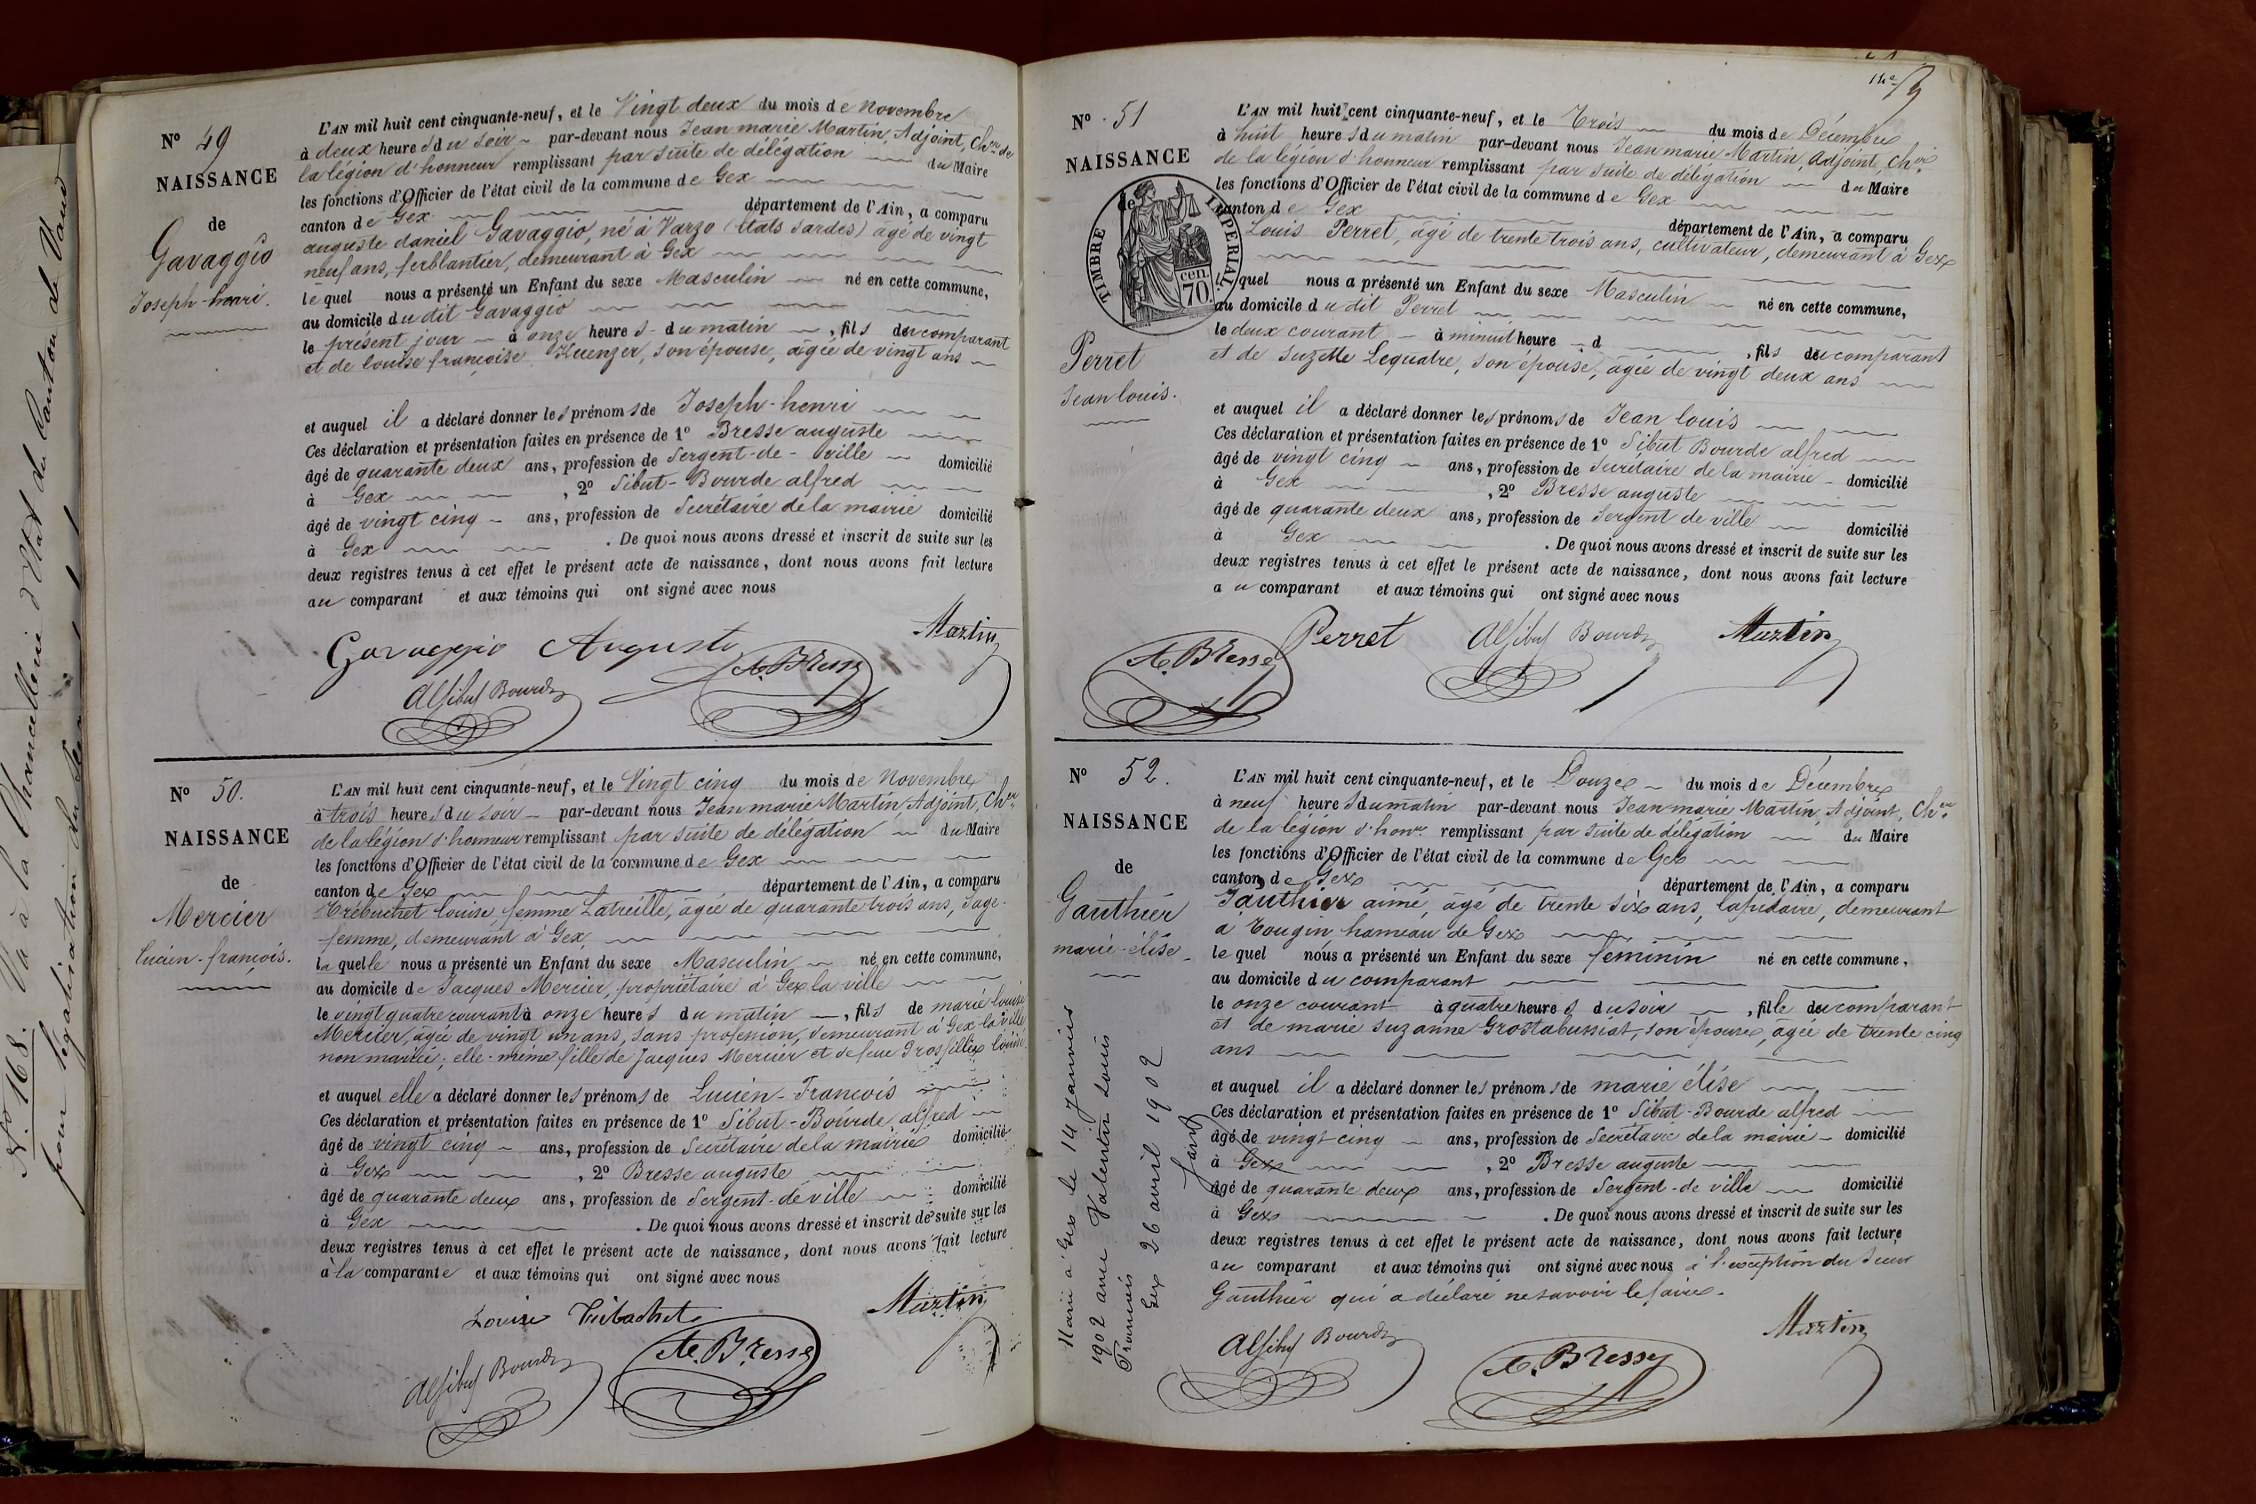 Nº 49
NAISSANCE
de
Gavaggio
Joseph-henri.
L'AN mil huit cent cinquante-neuf, et le Vingt deux du mois de Novembre
à deux heures du soir par-devant nous Jean marie Martin, Adjoint, Cher de
la légion d'honneur remplissant par suite de délégation du Maire
les fonctions d'Officier de l'état civil de la commune de Gex
canton de Gex département de l'Ain, a comparu
auguste daniel Gavaggio, né à Varzo (États Sardes) âgé de vingt
neuf ans, ferblantier, demeurant à Gex
le quel nous a présenté un Enfant du sexe Masculin né en cette commune,
au domicile du dit Gavaggio
le présent jour à onze heures du matin, fils du comparant
et de louise françoise Kuenzer, son épouse, âgée de vingt ans
et auquel il a déclaré donner les prénoms de Joseph-henri
Ces déclaration et présentation faites en présence de 1º Bresse auguste
âgé de quarante deux ans, profession de Sergent-de-ville domicilié
à Gex, 2º Sibut-Bourde alfred
âgé de vingt cinq ans, profession de Secrétaire de la mairie domicilié
à Gex. De quoi nous avons dressé et inscrit de suite sur les
deux registres tenus à cet effet le présent acte de naissance, dont nous avons fait lecture
au comparant et aux témoins qui ont signé avec nous
Martin
Gavaggio Augusto
A. Bresse
Al Sibut Bourde
Nº 50.
NAISSANCE
de
Mercier
lucien-françois.
L'AN mil huit cent cinquante-neuf, et le Vingt cinq du mois de Novembre
à trois heures du soir par-devant nous Jean marie Martin, Adjoint, Cher
de la légion d'honneur remplissant par suite de délégation du Maire
les fonctions d'Officier de l'état civil de la commune de Gex
canton de Gex département de l'Ain, a comparu
Trébuchet louise, femme Latreille, âgée de quarante trois ans, Sage-
femme, demeurant à Gex
la quelle nous a présenté un Enfant du sexe Masculin né en cette commune,
au domicile de Jacques Mercier, propriétaire à Gex la ville
le vingt quatre courant à onze heures du matin, fils de marie louise
Mercier, âgée de vingt un ans, sans profession, demeurant à Gex la ville
non mariée; elle-même fille de Jacques Mercier et de feue Grosfillex louise.
et auquel elle a déclaré donner les prénoms de Lucien-François
Ces déclaration et présentation faites en présence de 1º Sibut-Bourde alfred
âgé de vingt cinq ans, profession de Secrétaire de la mairie domicilié
à Gex, 2º Bresse auguste
âgé de quarante deux ans, profession de Sergent-de ville domicilié
à Gex. De quoi nous avons dressé et inscrit de suite sur les
deux registres tenus à cet effet le présent acte de naissance, dont nous avons fait lecture
à la comparante et aux témoins qui ont signé avec nous
Louise Trébuchet
Martin
Al Sibut Bourde
A. Bresse
Nº 168. Va à la Chancellerie d'État du Canton de Vaud
pour légalisation du
Nº 51
NAISSANCE
de
TIMBRE IMPÉRIAL
70 cen.
Perret
Jean louis.
L'AN mil huit cent cinquante-neuf, et le Trois du mois de Décembre
à huit heures du matin par-devant nous Jean marie Martin, Adjoint, Cher
de la légion d'honneur remplissant par suite de délégation du Maire
les fonctions d'Officier de l'état civil de la commune de Gex
canton de Gex département de l'Ain, a comparu
Louis Perret, âgé de trente trois ans, cultivateur, demeurant à Gex
le quel nous a présenté un Enfant du sexe Masculin né en cette commune,
au domicile du dit Perret
le deux courant à minuit heure d, fils du comparant
et de Suzette Lequatre, son épouse, âgée de vingt deux ans
et auquel il a déclaré donner les prénoms de Jean louis
Ces déclaration et présentation faites en présence de 1º Sibut Bourde alfred
âgé de vingt cinq ans, profession de Secrétaire de la mairie domicilié
à Gex, 2º Bresse auguste
âgé de quarante deux ans, profession de Sergent de ville domicilié
à Gex. De quoi nous avons dressé et inscrit de suite sur les
deux registres tenus à cet effet le présent acte de naissance, dont nous avons fait lecture
au comparant et aux témoins qui ont signé avec nous
A. Bresse
Perret
Al Sibut Bourde
Martin
Nº 52.
NAISSANCE
de
Gauthier
marie-élise
L'AN mil huit cent cinquante-neuf, et le Douze du mois de Décembre
à neuf heures du matin par-devant nous Jean marie Martin, Adjoint, Cher
de la légion d'honr remplissant par suite de délégation du Maire
les fonctions d'Officier de l'état civil de la commune de Gex
canton de Gex département de l'Ain, a comparu
Gauthier aimé, âgé de trente six ans, lapidaire, demeurant
à Tougin hameau de Gex
le quel nous a présenté un Enfant du sexe féminin né en cette commune,
au domicile du comparant
le onze courant à quatre heures du soir, fille du comparant
et de marie suzanne Grostabussiat, son épouse, âgée de trente cinq
ans
et auquel il a déclaré donner les prénoms de marie élise
Ces déclaration et présentation faites en présence de 1º Sibut-Bourde alfred
âgé de vingt cinq ans, profession de Secrétaire de la mairie domicilié
à Gex, 2º Bresse auguste
âgé de quarante deux ans, profession de Sergent-de ville domicilié
à Gex. De quoi nous avons dressé et inscrit de suite sur les
deux registres tenus à cet effet le présent acte de naissance, dont nous avons fait lecture
au comparant et aux témoins qui ont signé avec nous à l'exception du Sieur
Gauthier qui a déclaré ne savoir le faire.
Al Sibut Bourde
A. Bresse
Martin
Marié à Gex le 14 Janvier
1902 avec Valentin Louis
François
Gex 26 avril 1902